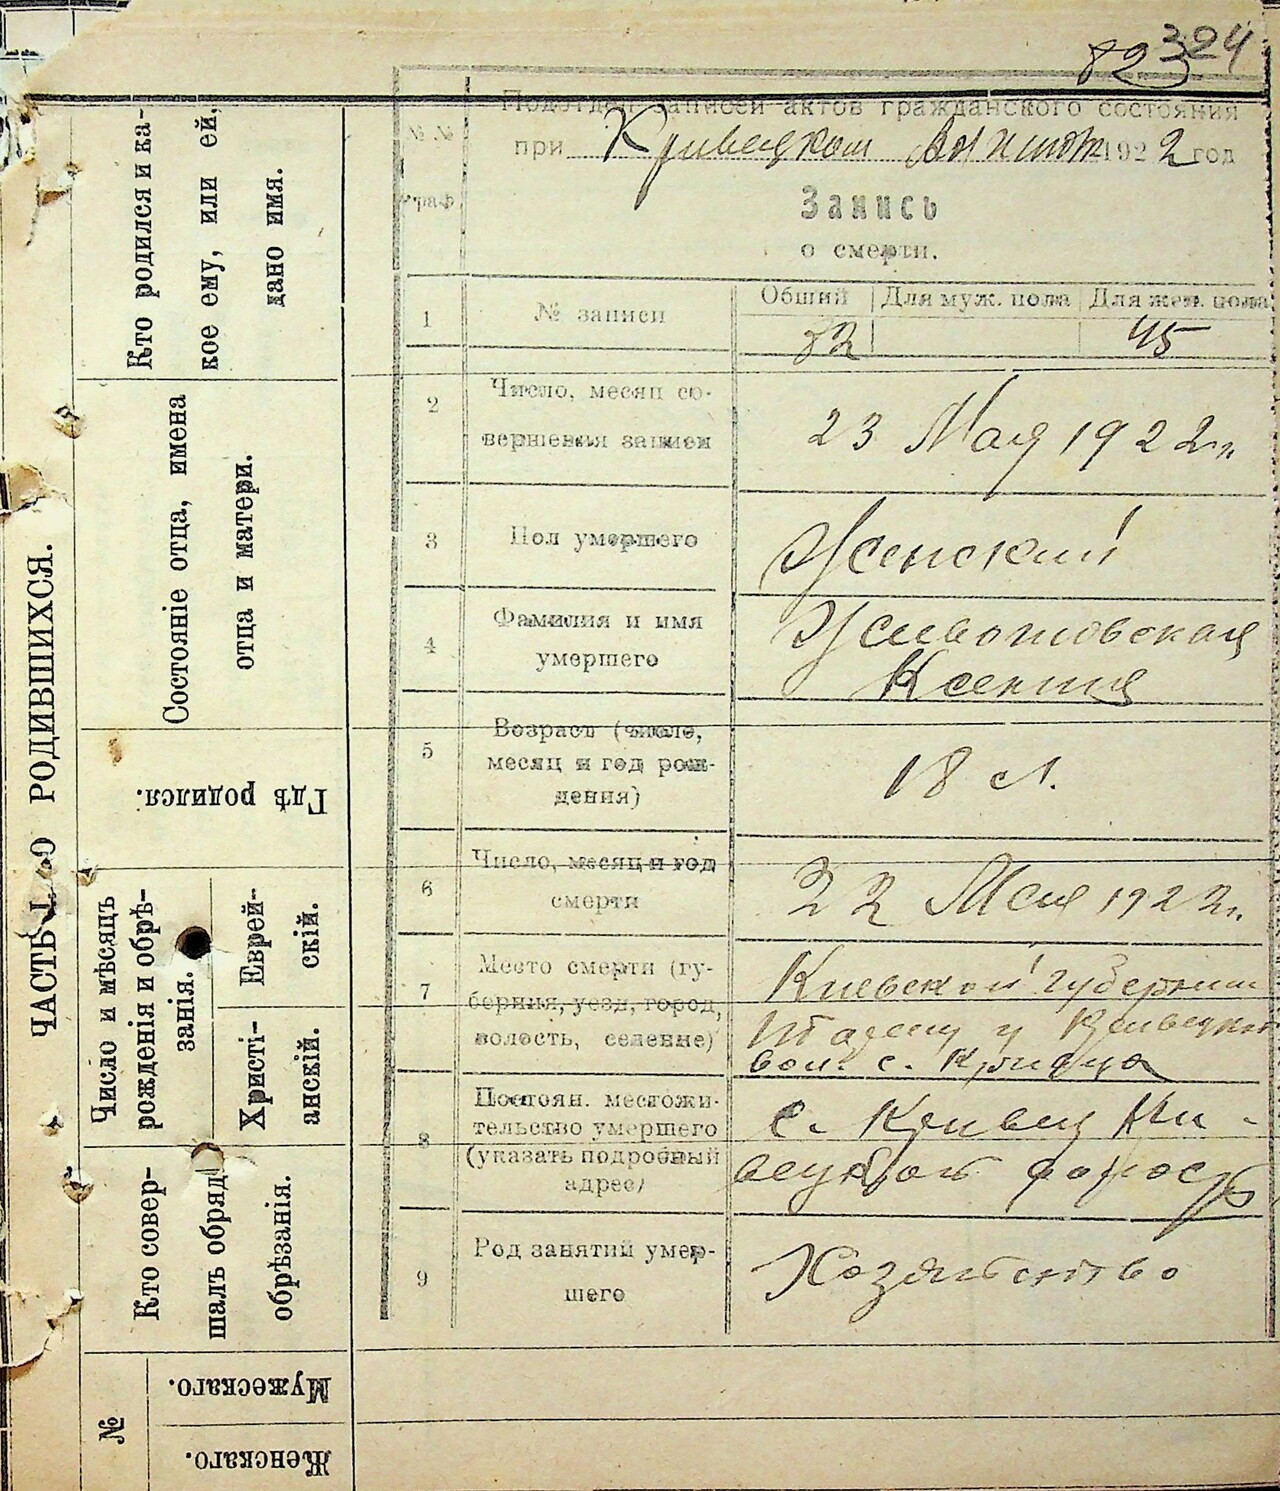 324
82
Подотдел записей актов гражданского состояния
при Кривецком 1922 год
№ №
граф
Запись
о смерти.
1
№ записи
Общий
Для муж. пола
Для жен. пола
82
45
2
Число, месяц со-
вершения записи
23 Мая 1922 г.
3
Пол умершего
Женский
4
Фамилия и имя
умершего
Животовская
Ксения
5
Возраст (число,
месяц и год рож-
дения)
18 л.
6
Число, месяц и год
смерти
22 Мая 1922 г.
7
Место смерти (гу-
берния, уезд, город,
волость, селение)
Киевской губернии
у Кривецкой
вол. с. Кривец
8
Постоян. местожи-
тельство умершего
(указать подробный
адрес)
с. Кривец
9
Род занятий умер-
шего
Хозяйство
ЧАСТЬ I. О РОДИВШИХСЯ.
Кто родился и ка-
кое ему, или ей,
дано имя.
Состояніе отца, имена
отца и матери.
Гдѣ родился.
Число и мѣсяцъ
рожденія и обрѣ-
занія.
Еврей-
скій.
Христі-
анскій.
Кто совер-
шалъ обрядъ
обрѣзанія.
№
Мужескаго.
Женскаго.